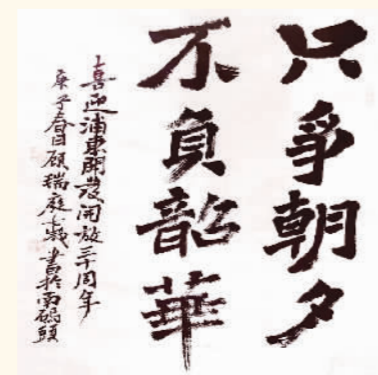 只爭朝夕
不負韶華
喜迎浦東開發開放三十周年
庚子春日顧瑞庭敬書於南碼頭